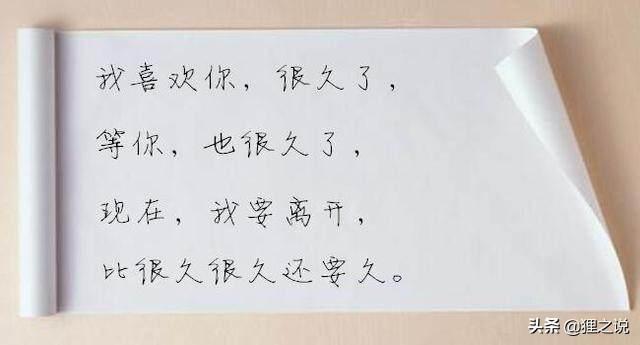 我喜欢你，很久了，
等你，也很久了，
现在，我要离开，
比很久很久还要久。
头条 @狸之说